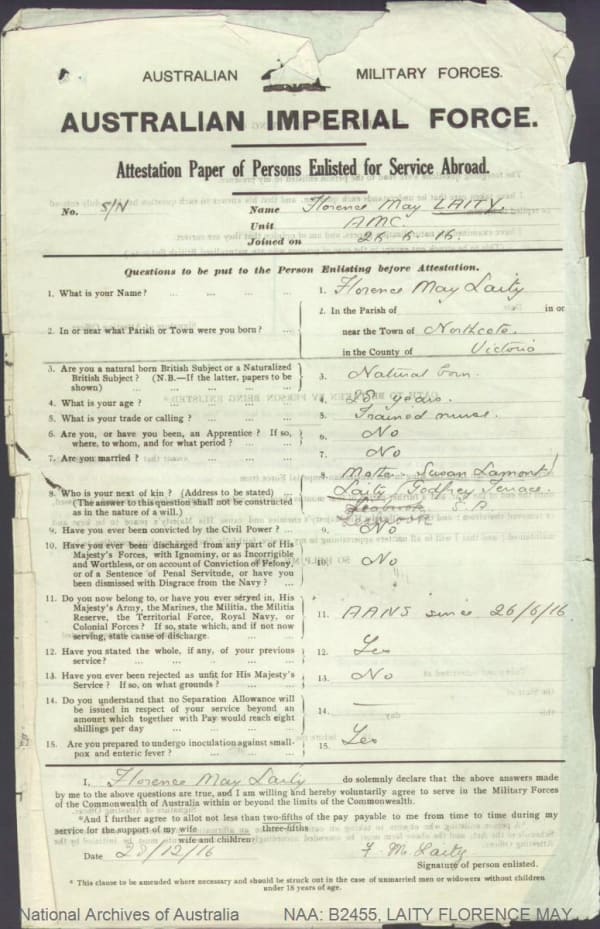 AUSTRALIAN MILITARY FORCES.
AUSTRALIAN IMPERIAL FORCE.
Attestation Paper of Persons Enlisted for Service Abroad.
No. S/N Name Florence May LAITY.
Unit AMC.
Joined on 26.6.16.
Questions to be put to the Person Enlisting before Attestation.
1. What is your Name? ... ... ... ... 1. Florence May Laity
2. In or near what Parish or Town were you born? ... 2. In the Parish of in or
near the Town of Northcote.
in the County of Victoria
3. Are you a natural born British Subject or a Naturalized
British Subject? (N.B.—If the latter, papers to be
shown) ... ... ... ... 3. Natural born.
4. What is your age? ... ... ... ... 4. 28 years.
5. What is your trade or calling? ... ... ... 5. Trained nurse.
6. Are you, or have you been, an Apprentice? If so,
where, to whom, and for what period? ... ... 6. No
7. Are you married? ... ... ... ... 7. No
8. Who is your next of kin? (Address to be stated) ...
(The answer to this question shall not be constructed
as in the nature of a will.) 8. Mother. Susan Lamont
Laity Godfrey Terrace.
Leabrook S.A.
9. Have you ever been convicted by the Civil Power? ... 9. No
10. Have you ever been discharged from any part of His
Majesty's Forces, with Ignominy, or as Incorrigible
and Worthless, or on account of Conviction of Felony,
or of a Sentence of Penal Servitude, or have you
been dismissed with Disgrace from the Navy? ... 10. No
11. Do you now belong to, or have you ever served in, His
Majesty's Army, the Marines, the Militia, the Militia
Reserve, the Territorial Force, Royal Navy, or
Colonial Forces? If so, state which, and if not now
serving, state cause of discharge 11. AANS since 26/6/16
12. Have you stated the whole, if any, of your previous
service? ... ... ... ... 12. Yes
13. Have you ever been rejected as unfit for His Majesty's
Service? If so, on what grounds? ... ... 13. No
14. Do you understand that no Separation Allowance will
be issued in respect of your service beyond an
amount which together with Pay would reach eight
shillings per day ... ... ... 14. —
15. Are you prepared to undergo inoculation against small-
pox and enteric fever? ... ... ... 15. Yes
I, Florence May Laity do solemnly declare that the above answers made
by me to the above questions are true, and I am willing and hereby voluntarily agree to serve in the Military Forces
of the Commonwealth of Australia within or beyond the limits of the Commonwealth.
*And I further agree to allot not less than two-fifths of the pay payable to me from time to time during my
three-fifths
service for the support of my wife
wife and children
Date 28/12/16 F. M. Laity
Signature of person enlisted.
* This clause to be amended where necessary and should be struck out in the case of unmarried men or widowers without children
under 18 years of age.
National Archives of Australia NAA: B2455, LAITY FLORENCE MAY